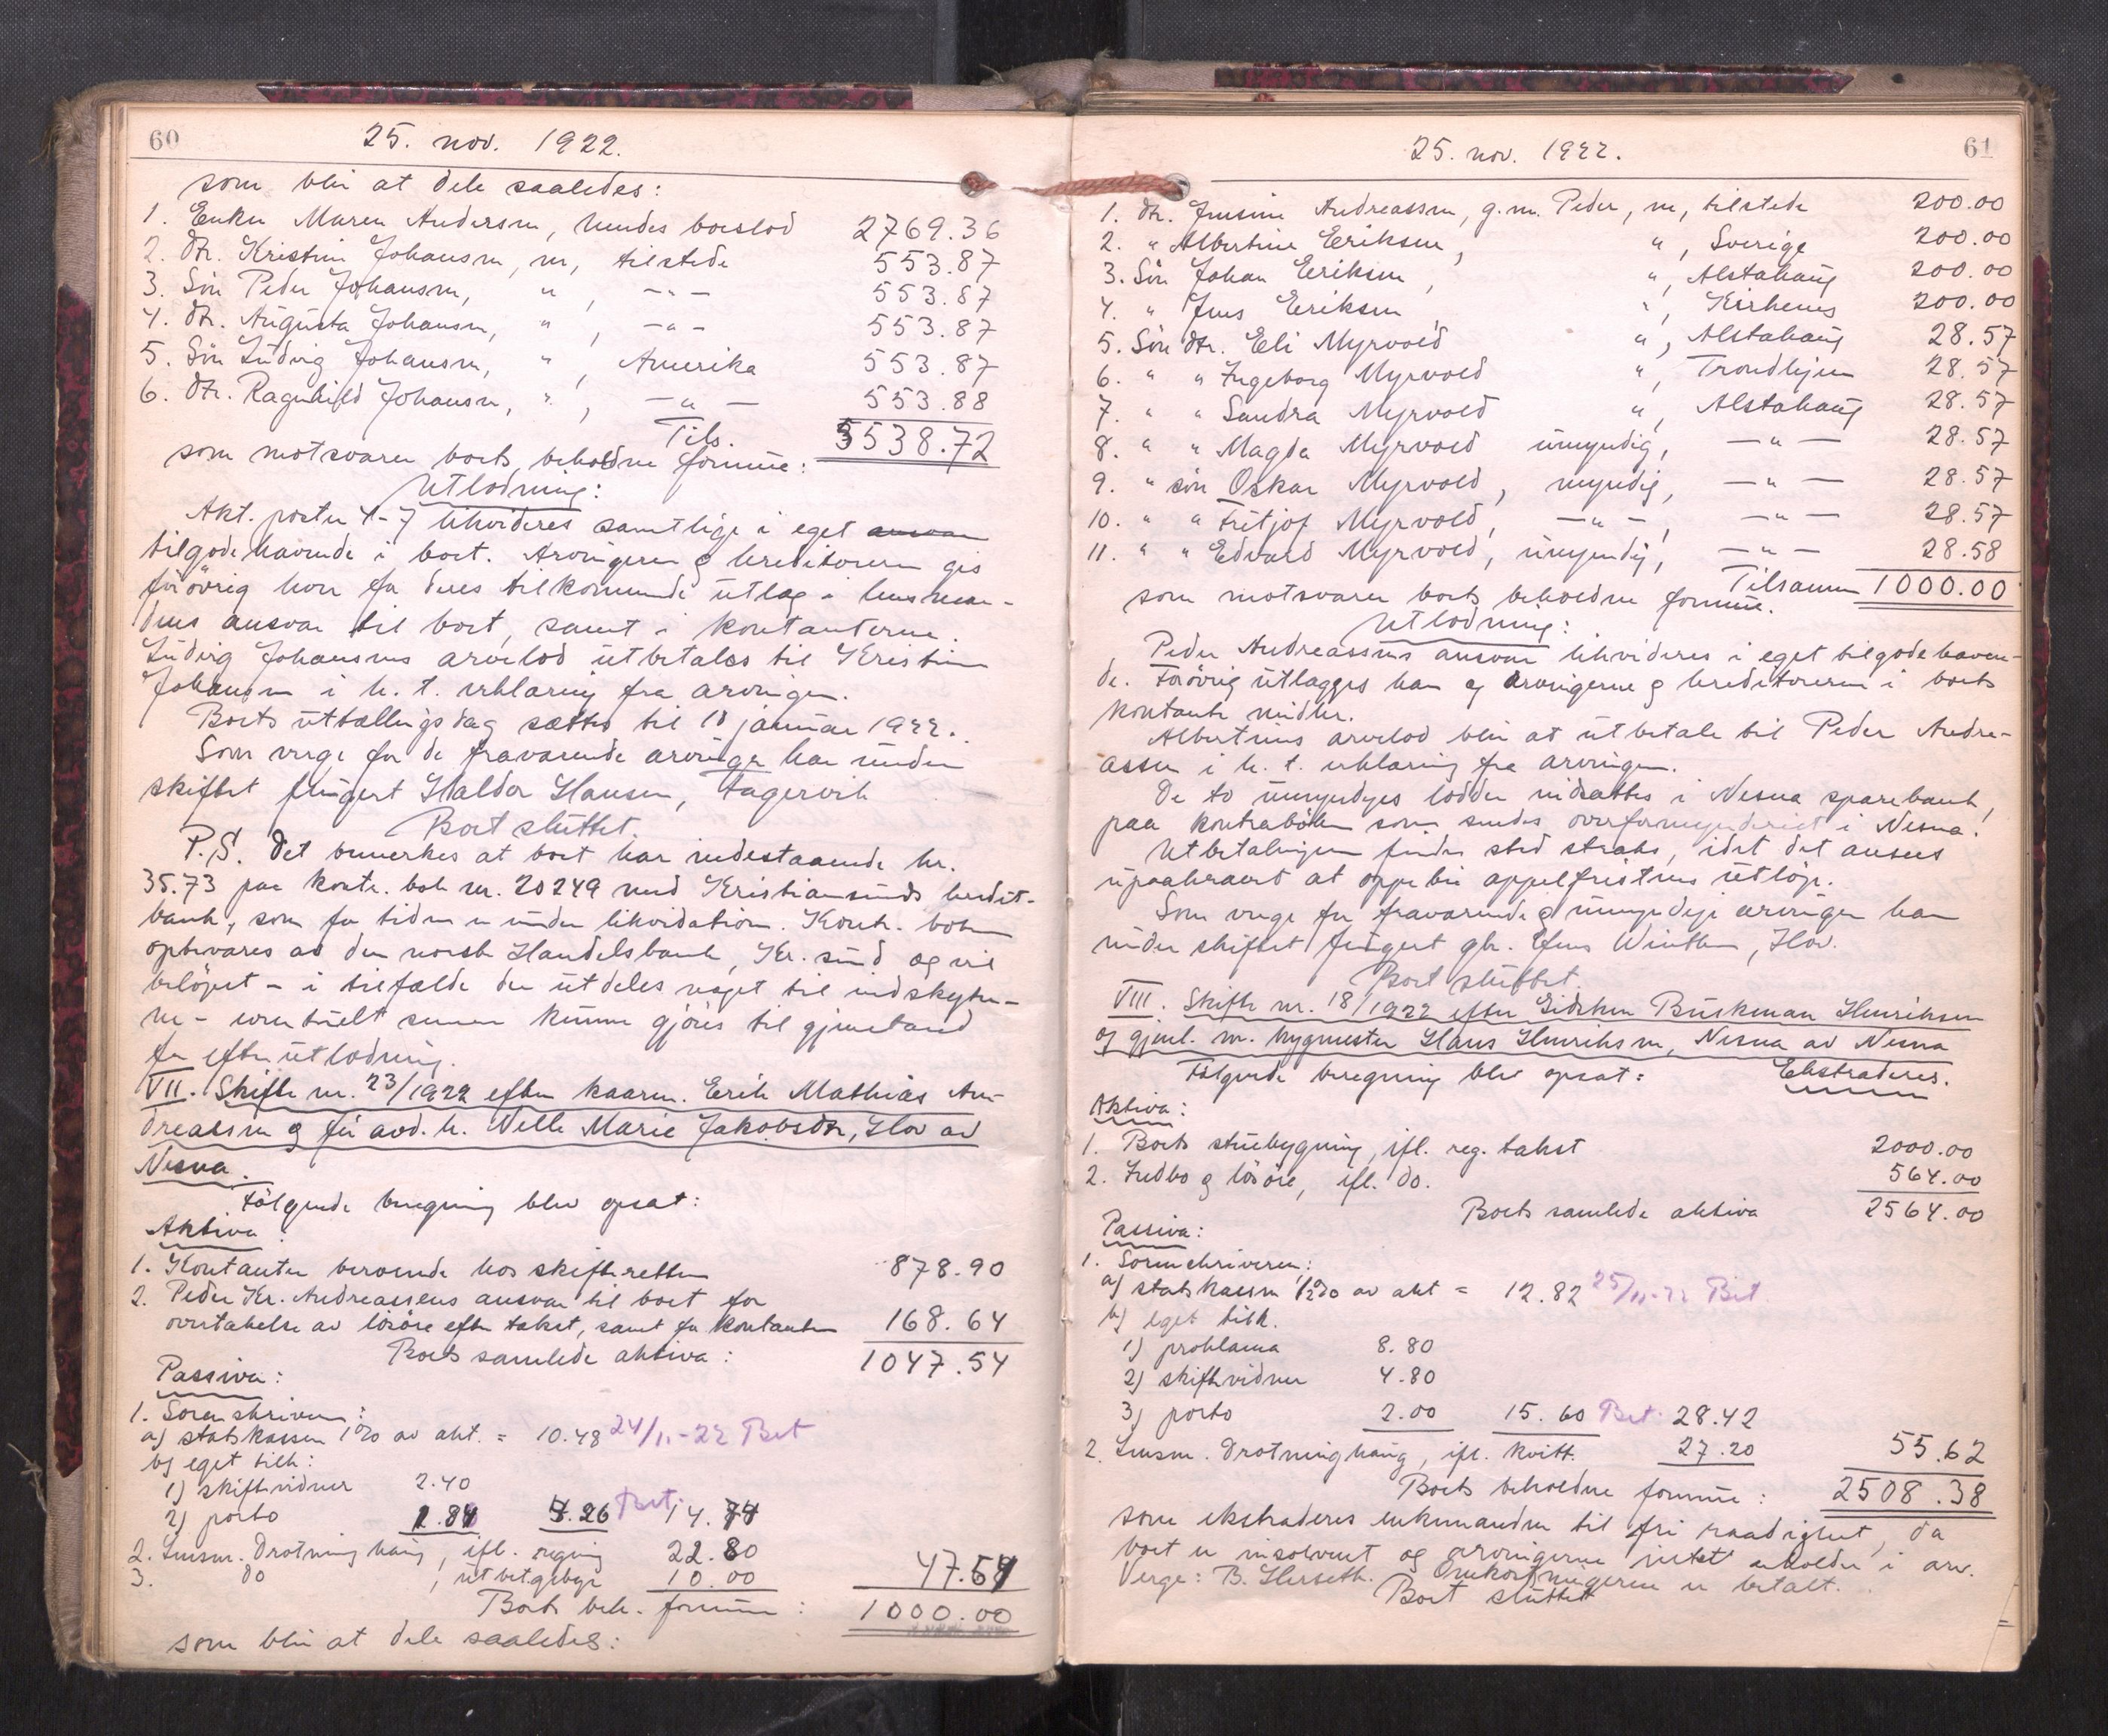 60
25. nov. 1922.
som blir at dele saaledes:
1. Enken Maren Andersen, hendes boeslod 2769.36
2. Dtr. Kristine Johansen, m, tilstede 553.87
3. Sön Peder Johansen, " , —"— 553.87
4. Dtr. Augusta Johansen, " , —"— 553.87
5. Sön Ludvig Johansen, " , Amerika 553.87
6. Dtr. Ragnhild Johansen, " , —"— 553.88
Tils. 5538.72
som motsvarer boets beholdne formue:
Utlodning:
Akt. poster 4-7 likvideres samtlige i eget ansvar
tilgodehavende i boet. Arvingerne & kreditorerne gis
forövrig hver for deres tilkommende utlæg i
ansvar til boet, samt i kontanterne.
Ludvig Johansens arvelod utbetales til Kristine
Johansen i h. t. erklæring fra arvingen.
Boets uttællingsdag sættes til 18 januar 1922.
Som verge for de fraværende arvinger har under
skiftet fungert Haldor Hansen, Fagervik
Boet sluttet.
P.S. Det bemerkes at boet har indestaaende kr.
35.73 paa kontr. bok nr. 20249 med Kristiansunds kredit-
bank, som for tiden er under likvidation. Kontr. boken
opbevares av den norske Handelsbank, Kr. sund og vil
belöpet - i tilfælde der utdeles noget til indskyter-
ne - eventuelt senere kunne gjöres til gjenstand
for efterutlodning.
VII. Skifte nr. 23/1922 efter kaarm. Erik Mathias An-
dreassen & för avd. h. Nelle Marie Jakobsdtr, Hov av
Nesna.
Fölgende beregning blev opsat:
Aktiva
1. Kontanter beroende hos skifteretten 878.90
2. Peder Kr. Andreassens ansvar til boet for
overtakelse av lösöre efter takst, samt for kontanter 168.64
Boets samlede aktiva: 1047.54
Passiva:
1. Sorenskriveren:
a) statskassen 1% av akt. = 10.48 24/11-22 Bet
b) eget tilk:
1) skiftevidner 2.40
2) porto 1.84 4.26 Bet. 14.74
2. Lensm. Drotninghaug, ifl. regning 22.80
3. do , utbet.gebyr 10.00 47.54
Boets beh. formue: 1000.00
som blir at dele saaledes:
61
25. nov. 1922.
1. Dtr. Jensine Andreassen, g. m. Peder, m, tilstede 200.00
2. " Albertine Eriksen, " , Sverige 200.00
3. Sön Johan Eriksen, " , Alstahaug 200.00
4. " Jens Eriksen, " , Kirkenes 200.00
5. Sön dtr. Eli Myrvold " , Alstahaug 28.57
6. " " Ingeborg Myrvold " , Trondhjem 28.57
7. " " Sandra Myrvold " , Alstahaug 28.57
8. " " Magda Myrvold umyndig, —"— 28.57
9. " sön Oskar Myrvold, myndig, —"— 28.57
10. " " Fritjof Myrvold, —"—, —"— 28.57
11. " " Edvard Myrvold, umyndig, —"— 28.58
Tilsammen 1000.00
som motsvarer boets beholdne formue.
Utlodning:
Peder Andreassens ansvar likvideres i eget tilgodehaven-
de. Forövrig utlægges han og arvingerne & kreditorerne i boets
kontante midler.
Albertines arvelod blir at utbetale til Peder Andre-
assen i h. t. erklæring fra arvingen.
De to umyndiges lodder indsættes i Nesna sparebank,
paa kontraböker som sendes overformynderiet i Nesna.
Utbetalingen finder sted straks, idet det ansees
upaakrævet at oppebie appelfristens utlöp.
Som verge for fraværende & umyndige arvinger har
under skiftet fungert gbr. Jens Winther, Hov.
Boet sluttet.
VIII. Skifte nr. 18/1922 efter Eidsken Buskman Henriksen
og gjenl. m. bygmester Hans Henriksen, Nesna av Nesna
Fölgende beregning blev opsat: Ekstraderes.
Aktiva:
1. Boets stuebygning, ifl. reg. takst 2000.00
2. Indbo & lösöre, ifl. do. 564.00
Boets samlede aktiva 2564.00
Passiva:
1. Sorenskriveren:
a) statskassen 1/2% av akt = 12.82 25/11-22 Bet.
b) eget tilk.
1) proklama 8.80
2) skiftevidner 4.80
3) porto 2.00 15.60 Bet. 28.42
2. Lensm. Drotninghaug, ifl. kvitt. 27.20 55.62
Boets beholdne formue: 2508.38
som ekstraderes enkemanden til fri raadighet, da
boet er insolvent og arvingerne intet erholder i arv.
Verge: B. Herseth. Omkostningerne er betalt.
Boet sluttet